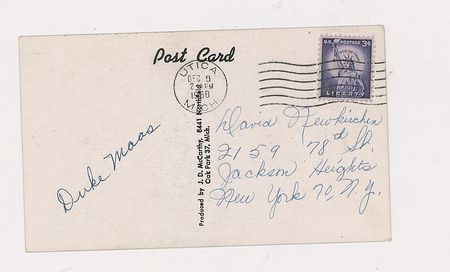 Post Card
UTICA
DEC 9
2 PM
1958
MICH.
U.S. POSTAGE 3¢
LIBERTY
Duke Maas
Produced by J. D. McCarthy, 8441
Oak Park 37, Mich.
David Newkirchen
2159 78th St.
Jackson Heights
New York 70, N.Y.